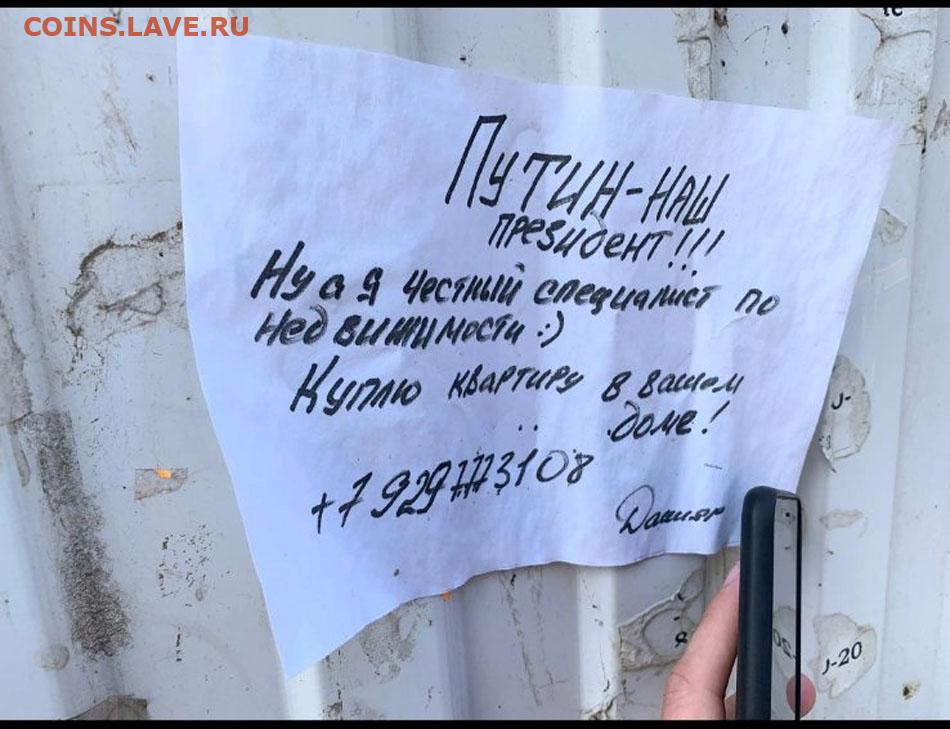 COINS.LAVE.RU
ПУТИН-НАШ
президент!!!
Ну а я честный специалист по
недвижимости :)
Куплю квартиру в вашем
доме!
+7 929 777 3108
J-
J-20